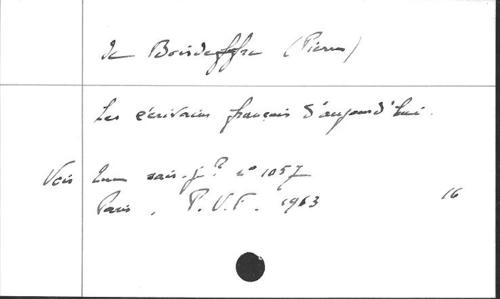 De Boisdeffre (Pierre)
Les écrivains français d'aujourd'hui.
Voir Que sais-je? n° 1057
Paris, P.U.F. 1963 16